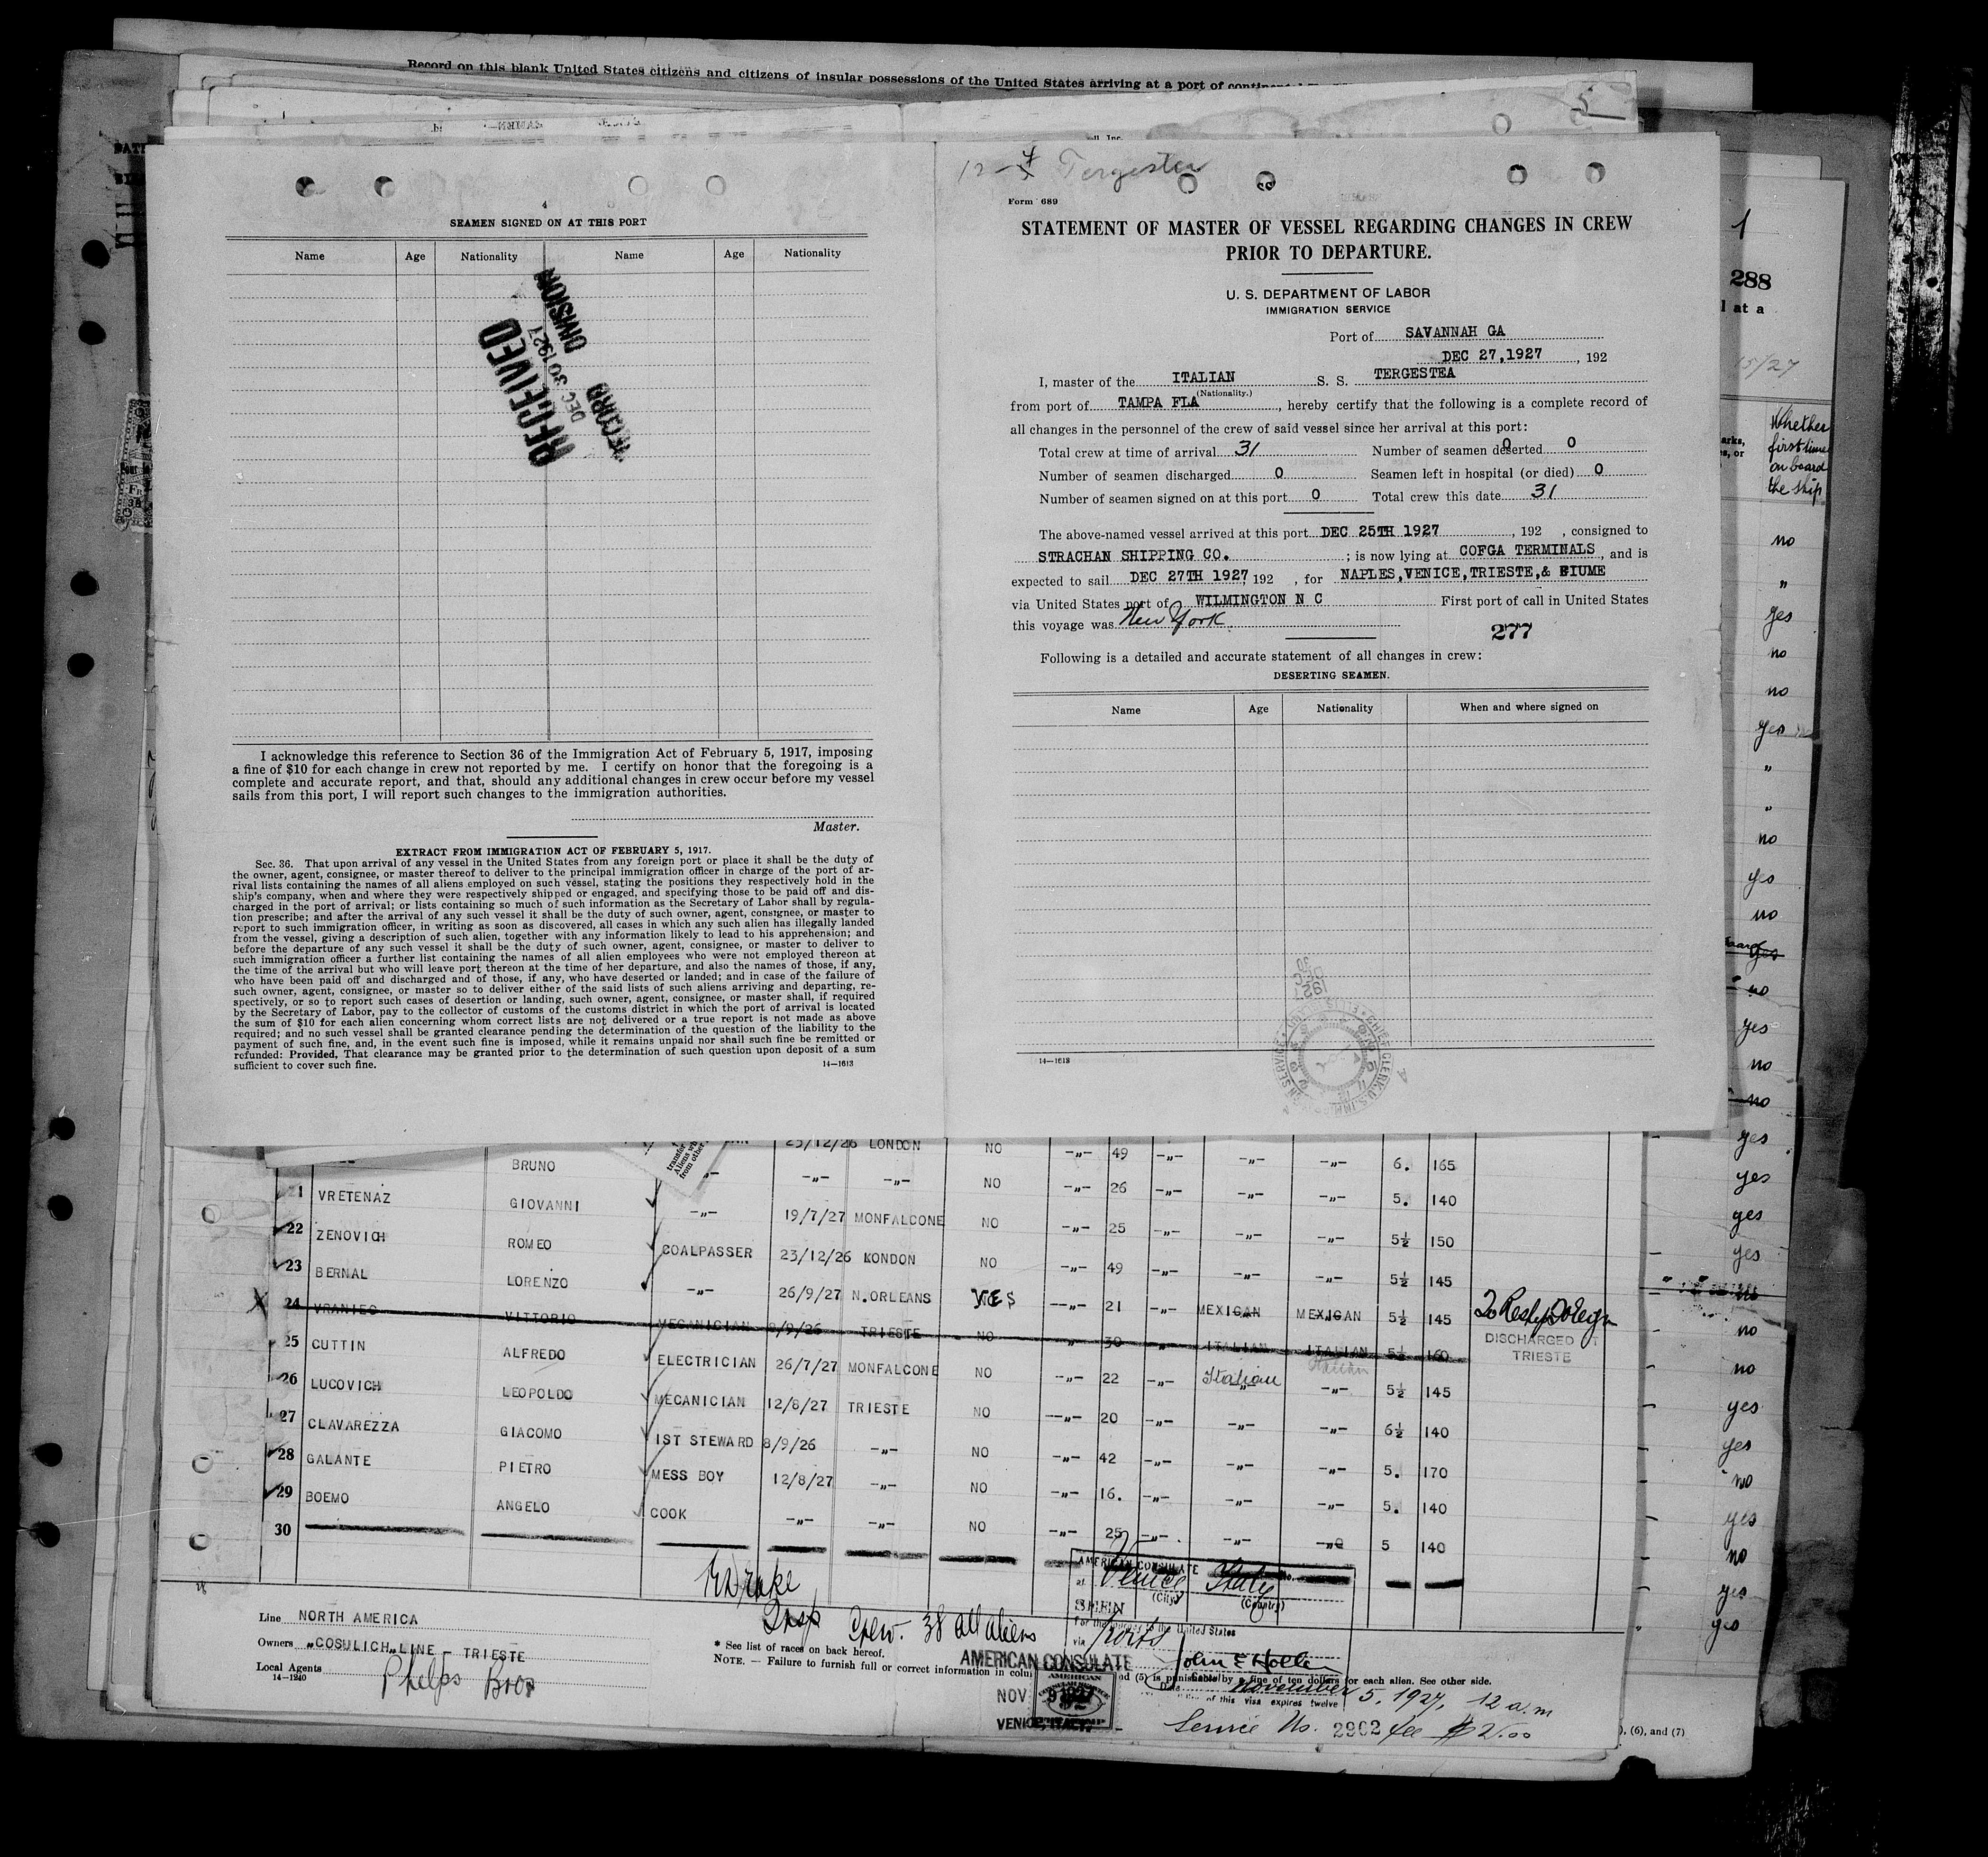 Record on this blank United States citizens and citizens of insular possessions of the United States arriving at a port of
4
SEAMEN SIGNED ON AT THIS PORT
Name Age Nationality Name Age Nationality
RECEIVED
DEC 30 1927
RECORD DIVISION
I acknowledge this reference to Section 36 of the Immigration Act of February 5, 1917, imposing
a fine of $10 for each change in crew not reported by me. I certify on honor that the foregoing is a
complete and accurate report, and that, should any additional changes in crew occur before my vessel
sails from this port, I will report such changes to the immigration authorities.
Master.
EXTRACT FROM IMMIGRATION ACT OF FEBRUARY 5, 1917.
Sec. 36. That upon arrival of any vessel in the United States from any foreign port or place it shall be the duty of
the owner, agent, consignee, or master thereof to deliver to the principal immigration officer in charge of the port of ar-
rival lists containing the names of all aliens employed on such vessel, stating the positions they respectively hold in the
ship's company, when and where they were respectively shipped or engaged, and specifying those to be paid off and dis-
charged in the port of arrival; or lists containing so much of such information as the Secretary of Labor shall by regula-
tion prescribe; and after the arrival of any such vessel it shall be the duty of such owner, agent, consignee, or master to
report to such immigration officer, in writing as soon as discovered, all cases in which any such alien has illegally landed
from the vessel, giving a description of such alien, together with any information likely to lead to his apprehension; and
before the departure of any such vessel it shall be the duty of such owner, agent, consignee, or master to deliver to
such immigration officer a further list containing the names of all alien employees who were not employed thereon at
the time of the arrival but who will leave port thereon at the time of her departure, and also the names of those, if any,
who have been paid off and discharged and of those, if any, who have deserted or landed; and in case of the failure of
such owner, agent, consignee, or master so to deliver either of the said lists of such aliens arriving and departing, re-
spectively, or so to report such cases of desertion or landing, such owner, agent, consignee, or master shall, if required
by the Secretary of Labor, pay to the collector of customs of the customs district in which the port of arrival is located
the sum of $10 for each alien concerning whom correct lists are not delivered or a true report is not made as above
required; and no such vessel shall be granted clearance pending the determination of the question of the liability to the
payment of such fine, and, in the event such fine is imposed, while it remains unpaid nor shall such fine be remitted or
refunded: Provided, That clearance may be granted prior to the determination of such question upon deposit of a sum
sufficient to cover such fine.
14—1613
12-4 Tergestea
Form 689
STATEMENT OF MASTER OF VESSEL REGARDING CHANGES IN CREW
PRIOR TO DEPARTURE.
U. S. DEPARTMENT OF LABOR
IMMIGRATION SERVICE
Port of SAVANNAH GA
DEC 27,1927, 192
I, master of the ITALIAN S. S. TERGESTEA
(Nationality.)
from port of TAMPA FLA, hereby certify that the following is a complete record of
all changes in the personnel of the crew of said vessel since her arrival at this port:
Total crew at time of arrival 31 Number of seamen deserted 0
Number of seamen discharged 0 Seamen left in hospital (or died) 0
Number of seamen signed on at this port 0 Total crew this date 31
The above-named vessel arrived at this port DEC 25TH 1927, 192 , consigned to
STRACHAN SHIPPING CO. ; is now lying at COFGA TERMINALS, and is
expected to sail DEC 27TH 1927, 192 , for NAPLES,VENICE,TRIESTE,& FIUME
via United States port of WILMINGTON N C First port of call in United States
this voyage was New York.
277
Following is a detailed and accurate statement of all changes in crew:
DESERTING SEAMEN.
Name Age Nationality When and where signed on
14—1613
1
288
l at a
15/27
Whether
first time
on board
the ship
no
"
yes
no
no
yes
"
"
no
yes
no
yes
no
yes
no
no
yes
yes
yes
yes
no
no
no
yes
yes
no
yes
no
yes
yes
23/12/26 LONDON NO -"- 49 -"- -"- -"- 6. 165
BRUNO -"- -"- -"- NO -"- 26 -"- -"- -"- 5. 140
21 VRETENAZ GIOVANNI -"- 19/7/27 MONFALCONE NO -"- 25 -"- -"- -"- 5½ 150
22 ZENOVICH ROMEO COALPASSER 23/12/26 LONDON NO -"- 49 -"- -"- -"- 5½ 145
23 BERNAL LORENZO -"- 26/9/27 N.ORLEANS YES -"- 21 -"- MEXICAN MEXICAN 5½ 145 To Reship Foreign
24 VRANIEC VITTORIO MECANICIAN 8/9/26 TRIESTE NO " 30 " ITALIAN ITALIAN 5½ 160 DISCHARGED AT TRIESTE
25 CUTTIN ALFREDO ELECTRICIAN 26/7/27 MONFALCONE NO -"- 22 -"- Italian Italian -"- 5½ 145
26 LUCOVICH LEOPOLDO MECANICIAN 12/8/27 TRIESTE NO -"- 20 -"- -"- -"- 6½ 140
27 CLAVAREZZA GIACOMO 1ST STEWARD 8/9/26 -"- NO -"- 42 -"- -"- -"- 5. 170
28 GALANTE PIETRO MESS BOY 12/8/27 -"- NO -"- 16. -"- -"- -"- 5. 140
29 BOEMO ANGELO COOK -"- -"- NO -"- 25 -"- -"- -"- 5 140
30
Insp Crew. 38 all aliens
Line NORTH AMERICA
Owners "COSULICH" LINE - TRIESTE
Local Agents Phelps Bros
14—1240
* See list of races on back hereof.
NOTE. — Failure to furnish full or correct information in colu
nd (5) is punishable by a fine of ten dollars for each alien. See other side.
AMERICAN CONSULATE
at Venice Italy
(City) (Country)
SEEN
For the journey to the United States
via ports
John E Holler
Date November 5, 1927, 12 a.m
of this visa expires twelve
Service No. 2962 fee $2.00
AMERICAN CONSULATE
NOV 1927
VENICE, ITALY.
), (6), and (7)